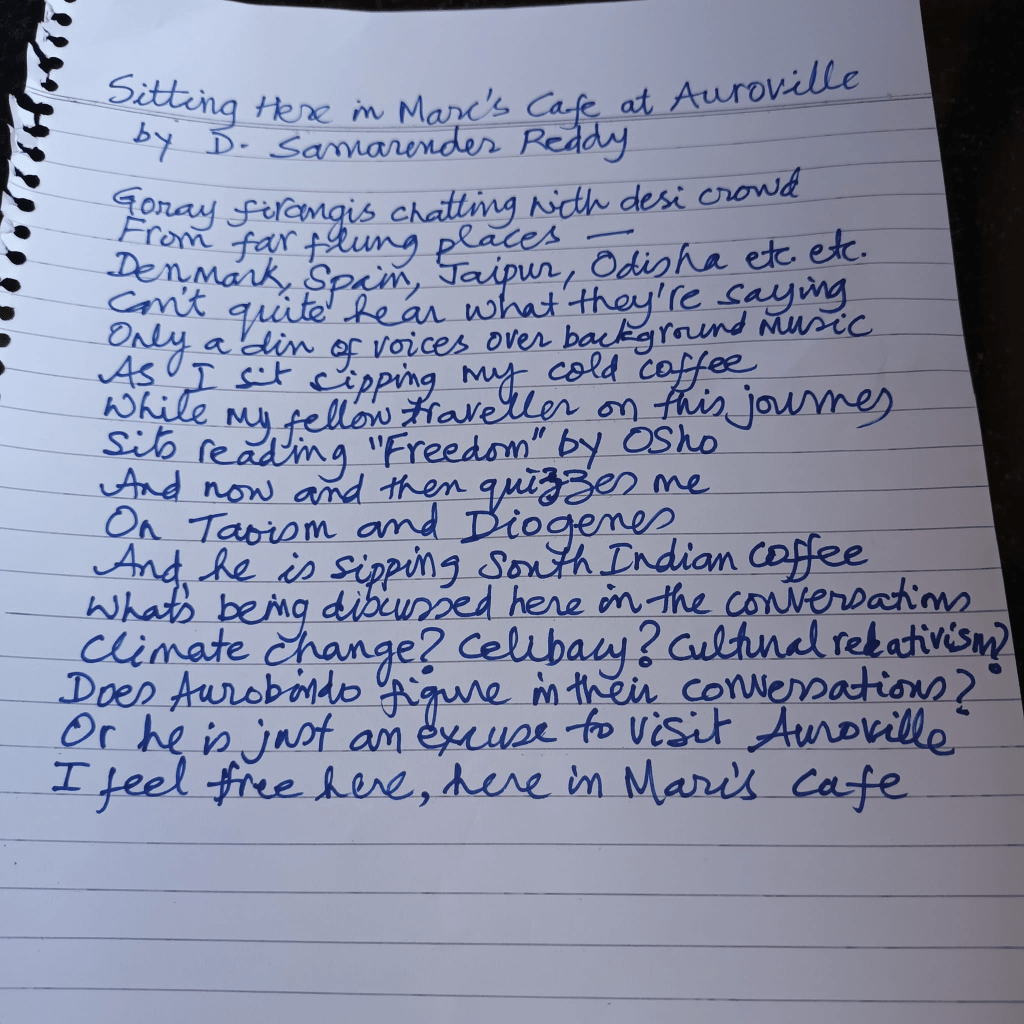 Sitting Here in Marc's Cafe at Auroville
by D. Samarender Reddy
Goray firangis chatting with desi crowd
From far flung places —
Denmark, Spain, Jaipur, Odisha etc. etc.
Can't quite hear what they're saying
Only a din of voices over background music
As I sit sipping my cold coffee
While my fellow traveller on this journey
Sits reading "Freedom" by OSho
And now and then quizzes me
On Taoism and Diogenes
And, he is sipping South Indian coffee
What's being discussed here in the conversations
Climate change? Celibacy? Cultural relativism?
Does Aurobindo figure in their conversations?
Or he is just an excuse to visit Auroville
I feel free here, here in Marc's Cafe